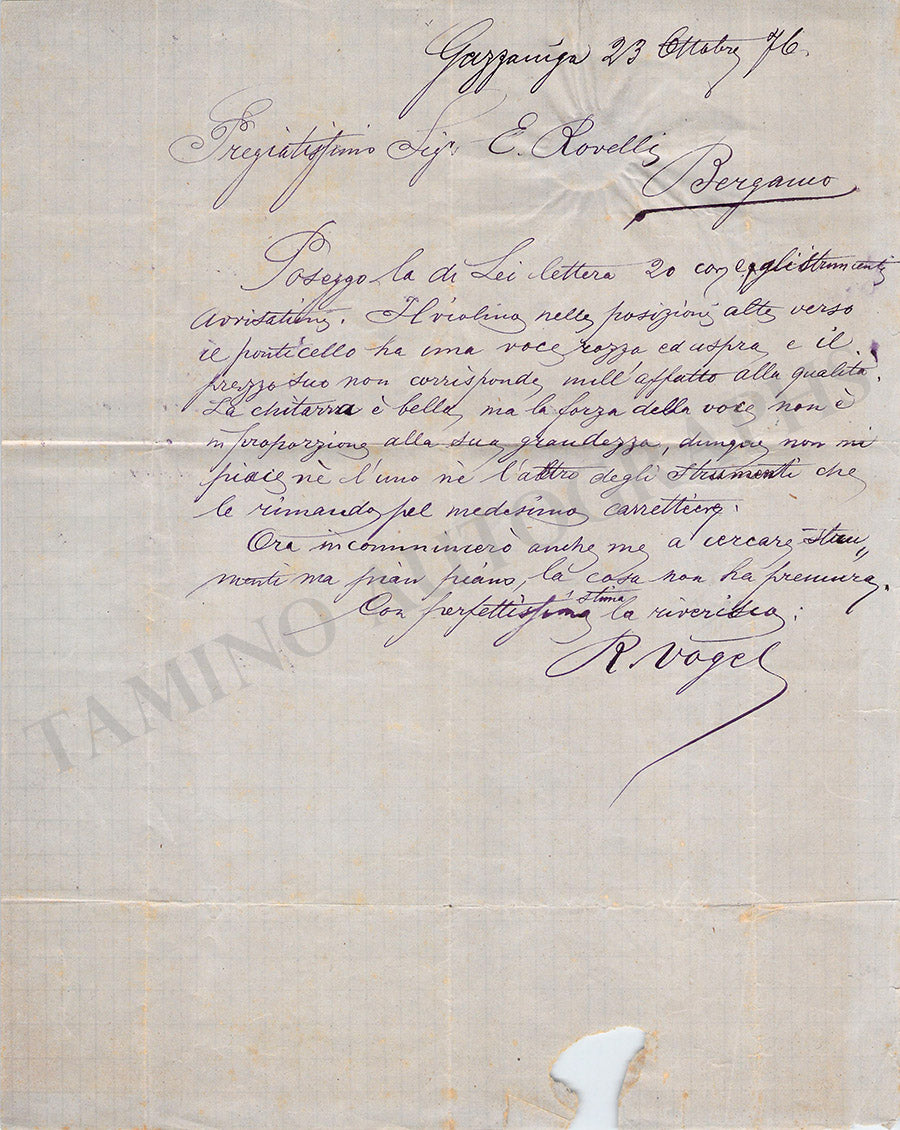 Gazzaniga 23 Ottobre 76.
Pregiatissimo Sigr. E. Rovelli
Bergamo
Poseggo la di Lei lettera 20 cor. e gli strumenti
avvisatimi. Il violino nelle posizioni alte verso
il ponticello ha una voce rozza ed aspra e il
prezzo suo non corrisponde null'affatto alla qualità.
La chitarra è bella, ma la forza della voce non è
in proporzione alla sua grandezza, dunque non mi
piace nè l'uno nè l'altro degli strumenti che
le rimando pel medesimo carrettiere.
Ora incomincierò anche me a cercare stru„
menti ma pian piano, la cosa non ha premura.
Con perfettissima stima la riverisco.
R. Vogel
TAMINO AUTOGRAPHS